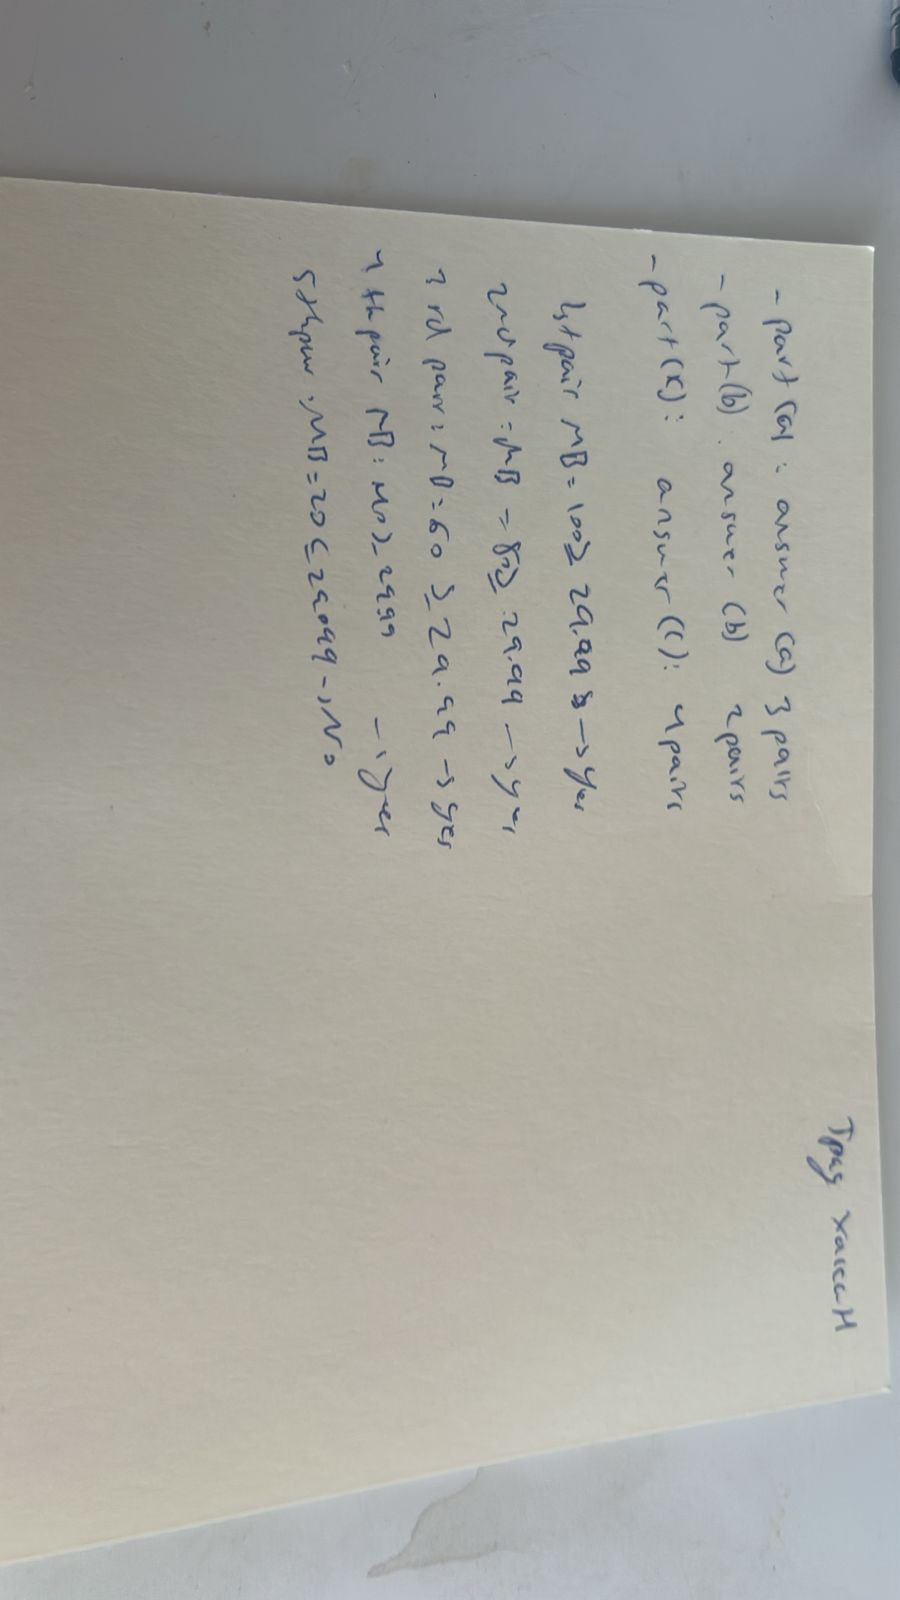 Трад хассан
- part (a) : answer (a) 3 pairs
- part (b) . answer (b) 2 pairs
- part (c) : answer (c) : 4 pairs
1st pair MB = 100 ≥ 29.99 → yes
2nd pair = MB = 80 ≥ 29.99 → yes
3rd pair : MB = 60 ≥ 29.99 → yes
4th pair MB : ≥ 29.99 → yes
5th pair : MB = 20 ≤ 29.99 → No